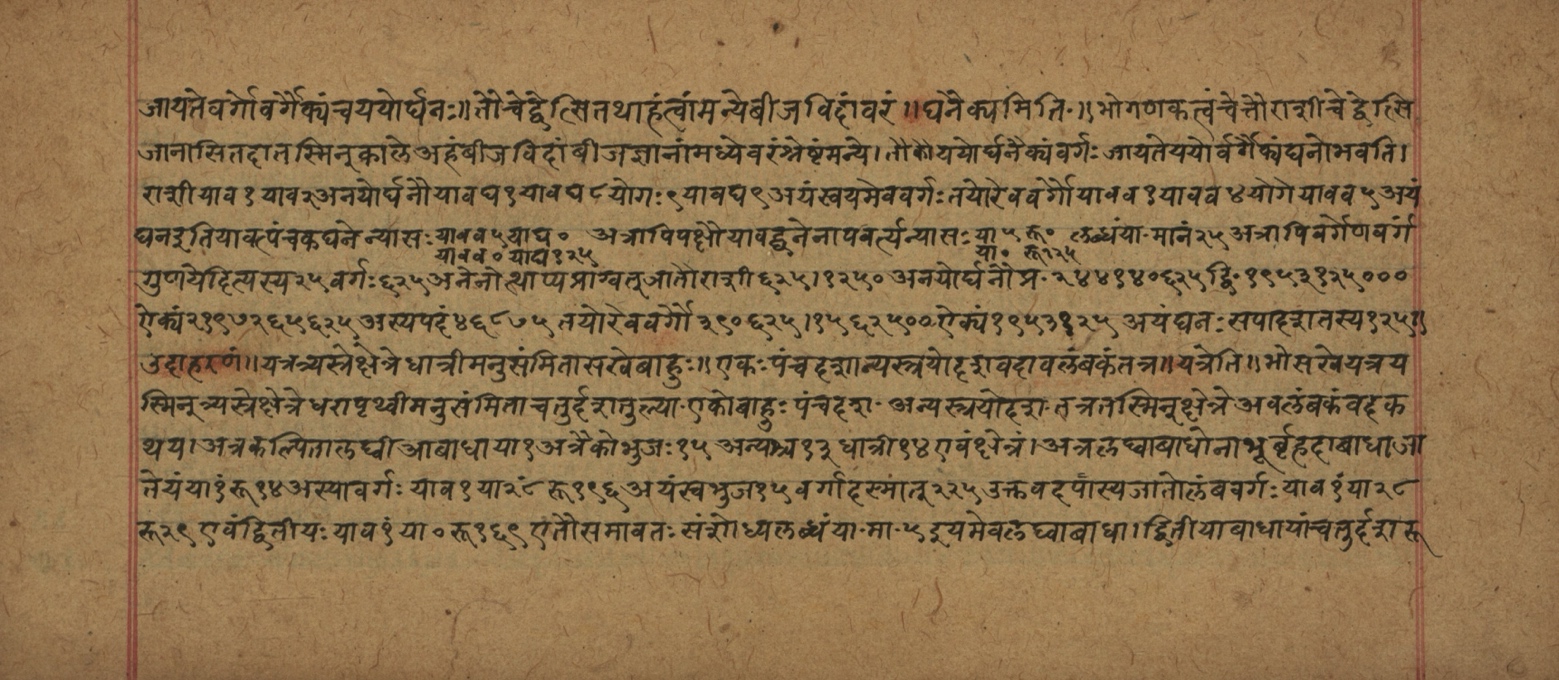 जायतेवर्गोवर्गैक्यंचययोर्घनः॥तौचेद्वेत्सितथाहंत्वांमन्येबीजविदांवरं॥घनैक्यमिति॰॥भोगणकत्वंचेत्तौराशीचेद्वेत्सि
जानासितदातस्मिन्कालेअहंबीजविदांबीजज्ञानांमध्येवरंश्रेष्ठंमन्ये।तौकौययोर्घनैक्यंवर्गः जायतेययोर्वर्गैक्यंघनोभवति।
राशीयाव१याव२अनयोर्घनौयावघ१यावघ८योगः९यावघ९अयंस्वयमेववर्गःतयोरेववर्गौयावव१यावव४योगेयावव५अयं
घनइतियावत्पंचकघनेन्यासःयावव५याघ॰ अत्रापिपक्षौयावद्घनेनापवर्त्यन्यासःया५रू॰ लब्धंया॰मानं२५अत्रापिवर्गेणवर्गं
यावव॰याघ१२५ या॰ रू१२५
गुणयेदित्यस्य२५वर्गः६२५अनेनोत्थाप्यप्राग्वत्जातौराशी६२५।१२५०अनयोर्घनौप्र॰२४४१४०६२५द्वि॰१९५३१२५०००
ऐक्यं२१९७२६५६२५अस्यपदं४६८७५तयोरेववर्गौ३९०६२५।१५६२५००ऐक्यं१९५३१२५अयंघनःसपादशतस्य१२५॥
उदाहरणं॥यत्रत्र्यस्रेक्षेत्रेधात्रीमनुसंमितासखेबाहुः॥एकःपंचदशान्यस्त्रयोदशवदावलंबकंतत्र॥यत्रेति॥भोसखेयत्रय
स्मिन्त्र्यस्रेक्षेत्रेधरापृथ्वीमनुसंमिताचतुर्दशतुल्या॰एकोबाहुःपंचदश॰अन्यस्त्रयोदश॰तत्रतस्मिन्क्षेत्रेअवलंबकंवदक
थय।अत्रकल्पितालघ्वीआबाधाया१अत्रैकोभुजः१५अन्यश्च१३धात्री१४एवंक्षेत्रं।अत्रलघ्वाबाधोनाभूर्बृहदाबाधाजा
तेयंया१ंरू१४अस्यावर्गःयाव१या२ं८रू१९६अयंस्वभुज१५वर्गादस्मात्२२५उक्तवदपास्यजातोलंबवर्गःयाव१ंया२८
रू२९एवंद्वितीयःयाव१ंया०रू१६९एतौसमावतःसंशोध्यलब्धंया॰मा॰५इयमेवलघ्वाबाधा।द्वितीयाबाधायांचतुर्दशरू